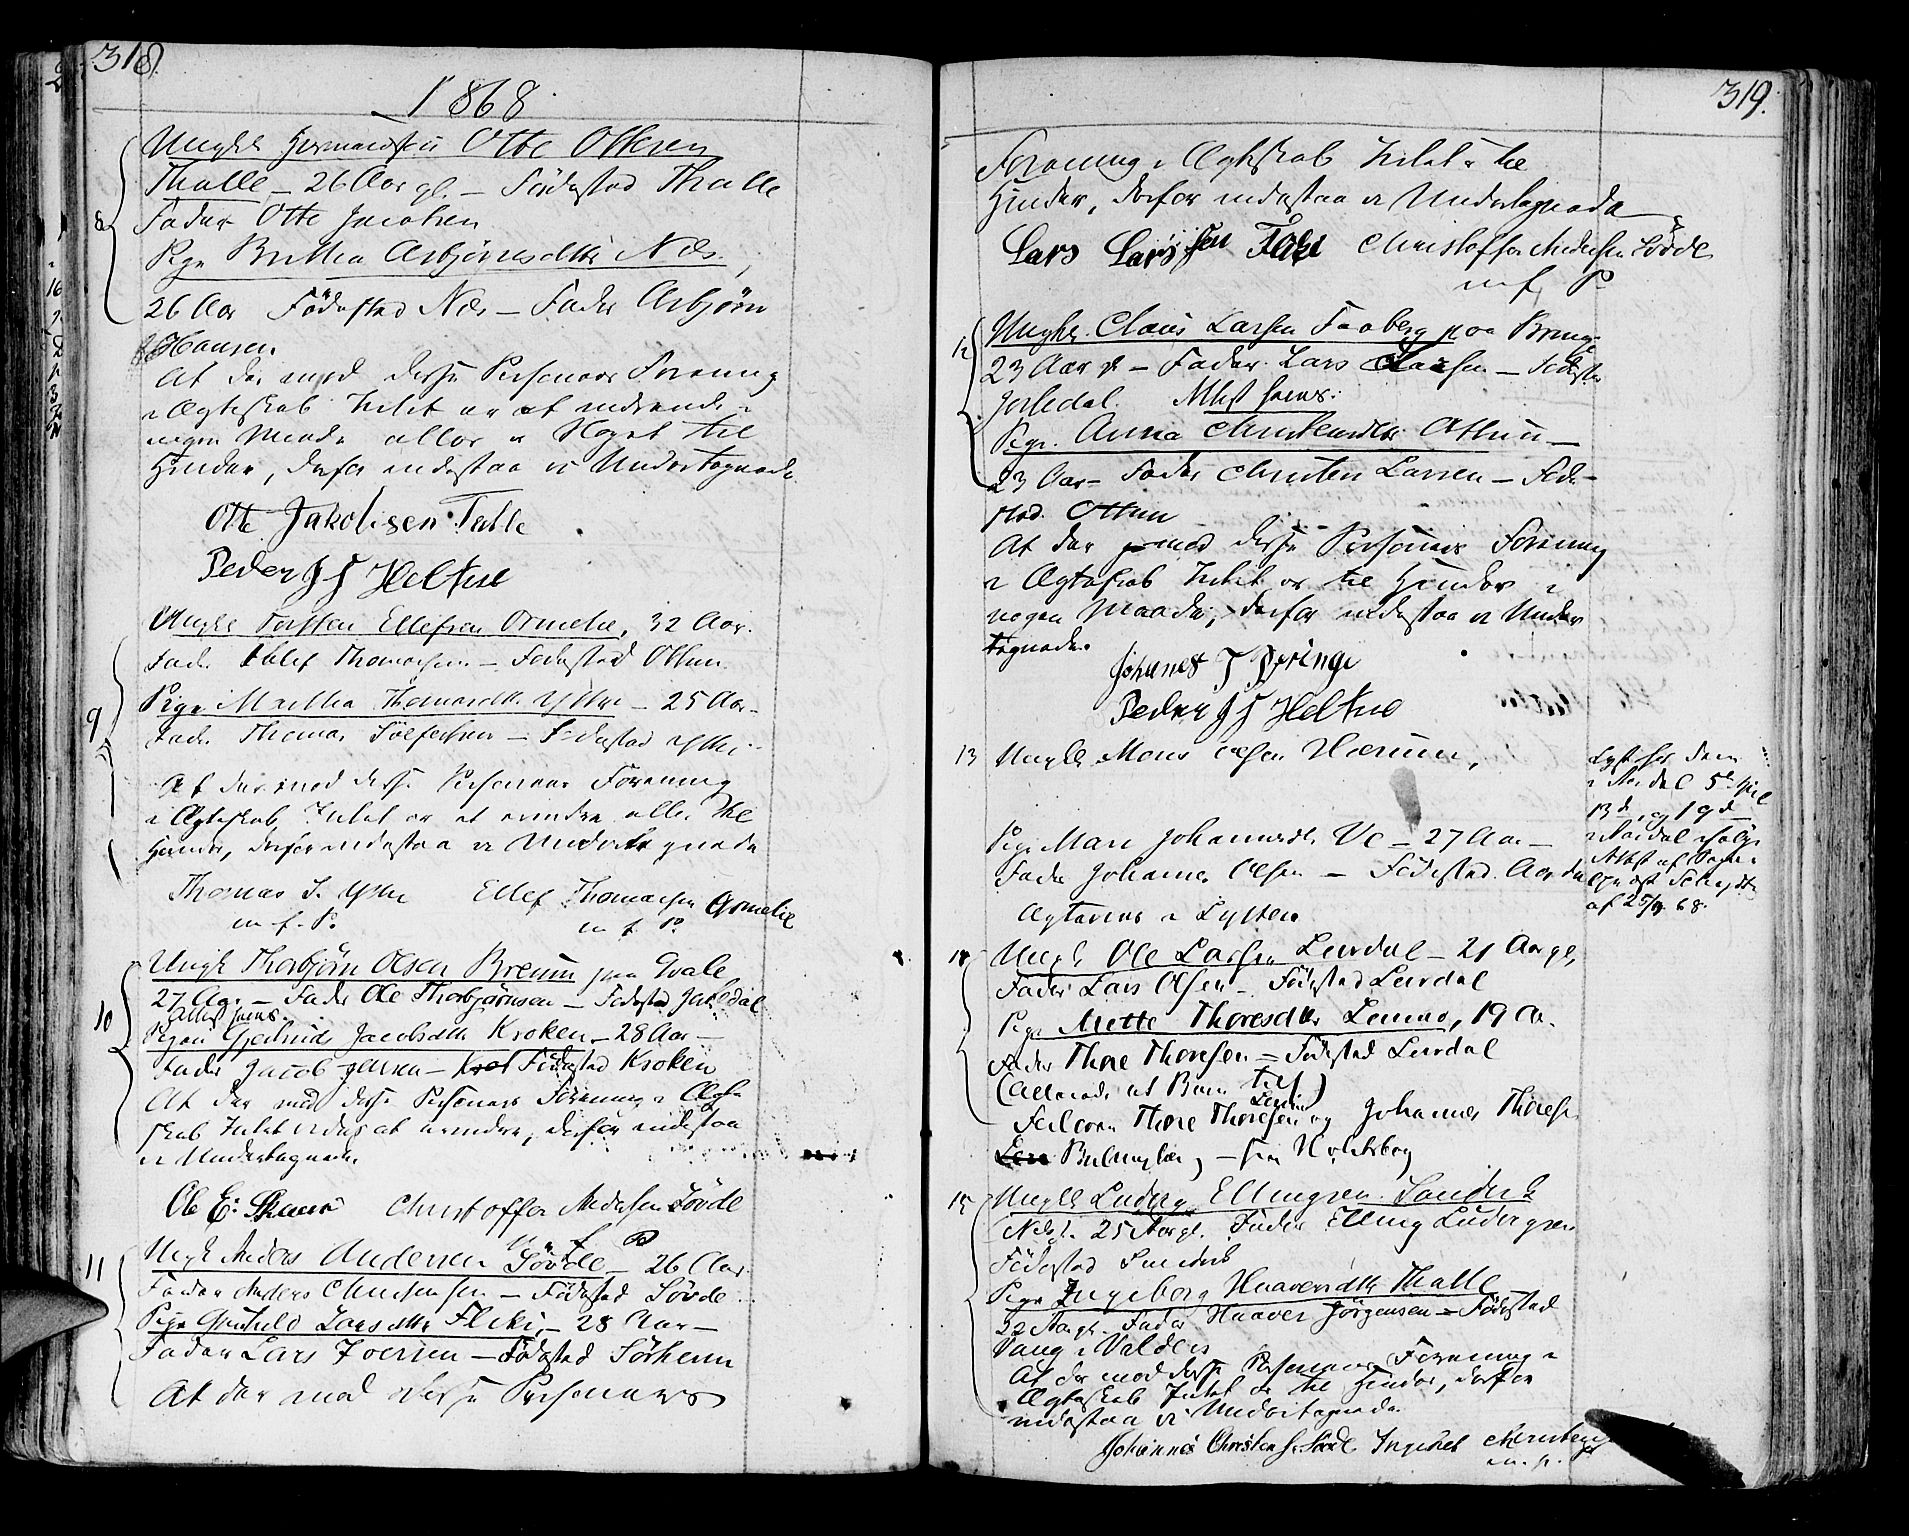 318.
1868.
8 Ungk. Otte Ottesen
Thalle – 26 Aar gl. – Födested Thalle
Fader Otte Jacobsen
Pige Brithe Asbjörnsdtr Næs,
26 Aar Födested Næs – Fader Asbjörn
Hansen.
At der imod disse Personers Forening
i Ægteskab Intet er at indvende i
nogen Maade eller er Noget til
Hinder, derfor indestaa vi Undertegnede
Otte Jakobsen Talle
Peder J S Heltne
9 Ungk Torsten Ellefsen Ormelie, 32 Aar.
Fader Ellef Thomassen – Fødested Ottum
Pige Martha Thomasdtr Yttri – 25 Aar –
Fader Thomas – Fødested Yttri.
At der imod disse Personers Forening
i Ægteskab Intet er at erindre eller til
Hinder, derfor indestaa vi Undertegnede
Thomas S. Yttri Ellef Thomassen Ormelie
m. f. P. m f. P.
10 Ungk Thorbjörn Olsen Breum paa Qvale
27 Aar – Fader Ole Thorbjørnsen – Fødested Jostedal
Attest haves.
Pigen Gjertrud Jacobsdtr Kroken – 28 Aar –
Fader Jacob Jensen – Födested Kroken
At der mod disse Personers Forening i Ægte
skab Intet vides at erindre, derfor indestaa
vi Undertegnede
Ole E. Skaar Christoffer Andersen Sövde
m f P
11 Ungk Anders Andersen Sövde – 26 Aar.
Fader Anders Christensen – Födested Sövde
Pige Gunhild Larsdtr Flicki – 28 Aar –
Fader Lars Iversen – Födested Sörheim
At der mod disse Personers
319.
Forening i Ægteskab Intet er til
Hinder, derfor indestaa vi Undertegnede
Lars Larssen Christoffer Andersen Sövde
m f P
12 Ungk. Claus Larsen Faaberg paa Bringe
23 Aar gl – Fader Lars Clausen – Födested
Jostedal. Attest haves.
Pige Anna Christensdtr Ottum –
23 Aar – Fader Christen Larsen – Föde-
sted Ottum
At der imod disse Personers Forening
i Ægteskab Intet er til Hinder i
nogen Maade, derfor indestaa vi Under
tegnede.
Johanes J Bringe
Peder J S Heltne
13 Ungk. Mons Olsen Hærum,
Pige Mari Johannesdtr Ve – 27 Aar –
Fader Johannes Olsen – Födested Aardal
Ægtevies i Lyster
Lyst for dem
i Aardal 5te April
13de og 19de
i Aardal ifölge
Attest af
af 25/4 68.
14 Ungk Ole Larsen Leirdal – 21 Aar gl,
Fader Lars Olsen – Födested Leirdal
Pige Mette Thoresdtr Leirmo, 19 Aar.
Fader Thore Thoresen – Födested Leirdal
(Allerede et Barn til)
Forlovere Thore Thoresen Leirmo og Johannes Thoresen
15 Ungk Ludvig Ellingsen Sandvik
25 Aar gl. Fader Elling Ludvigsen
Födested Sandvik
Pige Ingeborg Haaversdtr Thalle
22 Aar gl. Fader Haaver Jörgensen – Födested
Vang i Valders
At der mod disse Personers Forening i
Ægteskab Intet er til Hinder, derfor
indestaa vi Undertegnede
Johannes Christensen Sövde
m. f. P.